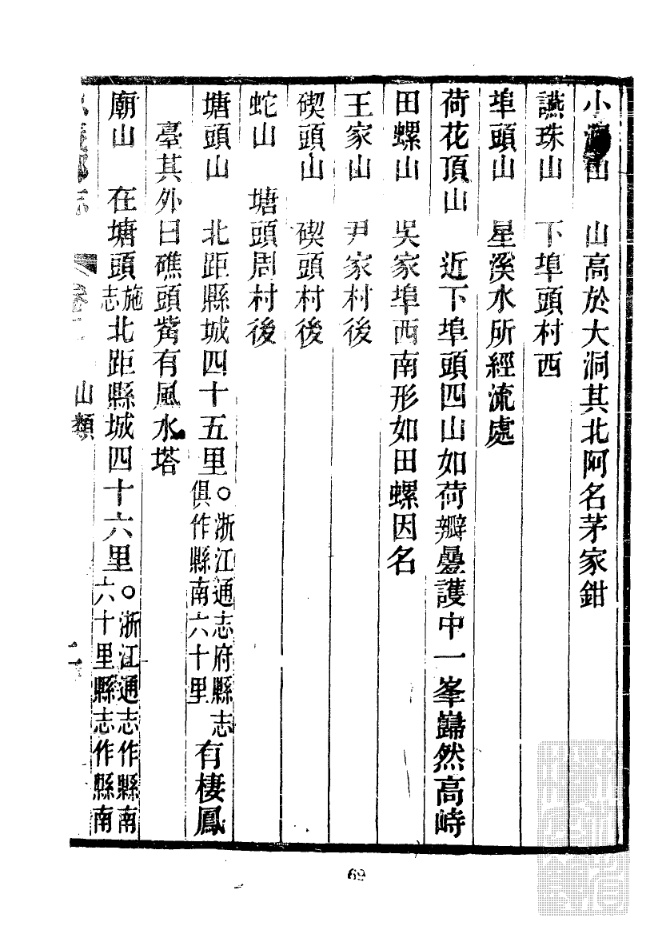 小洞山　山高於大洞其北阿名茅家鉗
讌珠山　下埠頭村西
埠頭山　星溪水所經流處
荷花頂山　近下埠頭四山如荷瓣疊護中一峯巋然高峙
田螺山　吳家埠西南形如田螺因名
王家山　尹家村後
碶頭山　碶頭村後
蛇山　塘頭周村後
塘頭山　北距縣城四十五里。浙江通志府縣志俱作縣南六十里有棲鳳
臺其外曰礁頭觜有風水塔
廟山　在塘頭施志北距縣城四十六里。浙江通志作縣南六十里縣志作縣南
志　卷　山類　二
69